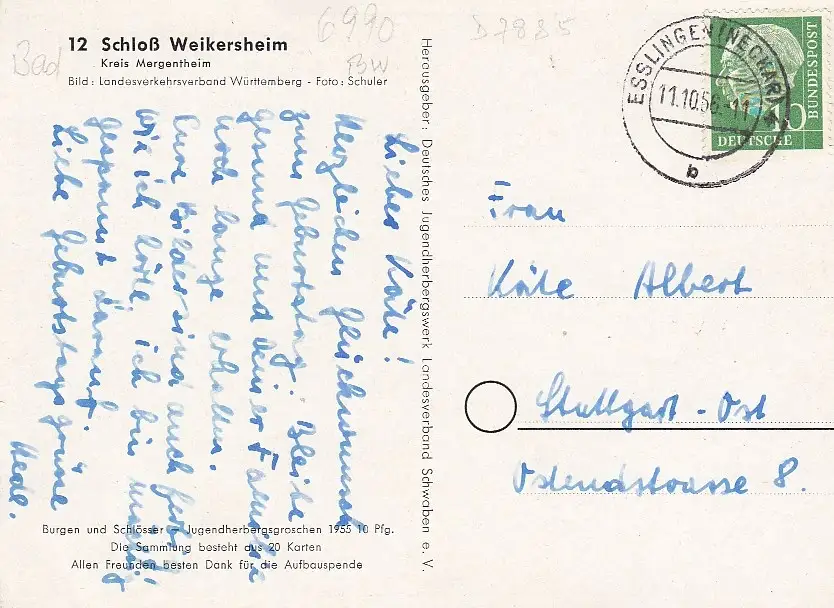 Bad
G990
BW
D7885
12 Schloß Weikersheim
Kreis Mergentheim
Bild: Landesverkehrsverband Württemberg - Foto: Schuler
Liebes Käte!
Herzlichen Glückwunsch
zum Geburtstag. Bleibe
gesund und deiner Familie
noch lange erhalten.
Eure Bilder sind auch fertig
wie ich hörte, ich bin
gespannt darauf.
Liebe Geburtstagsgrüsse
Hede.
Burgen und Schlösser - Jugendherbergsgroschen 1955 10 Pfg.
Die Sammlung besteht aus 20 Karten
Allen Freunden besten Dank für die Aufbauspende
Herausgeber: Deutsches Jugendherbergswerk Landesverband Schwaben e. V.
ESSLINGEN (NECKAR)
11.10.56.-11
b
DEUTSCHE
BUNDESPOST
10
Frau
Käte Albert
Stuttgart - Ost
Ostendstrasse 8.